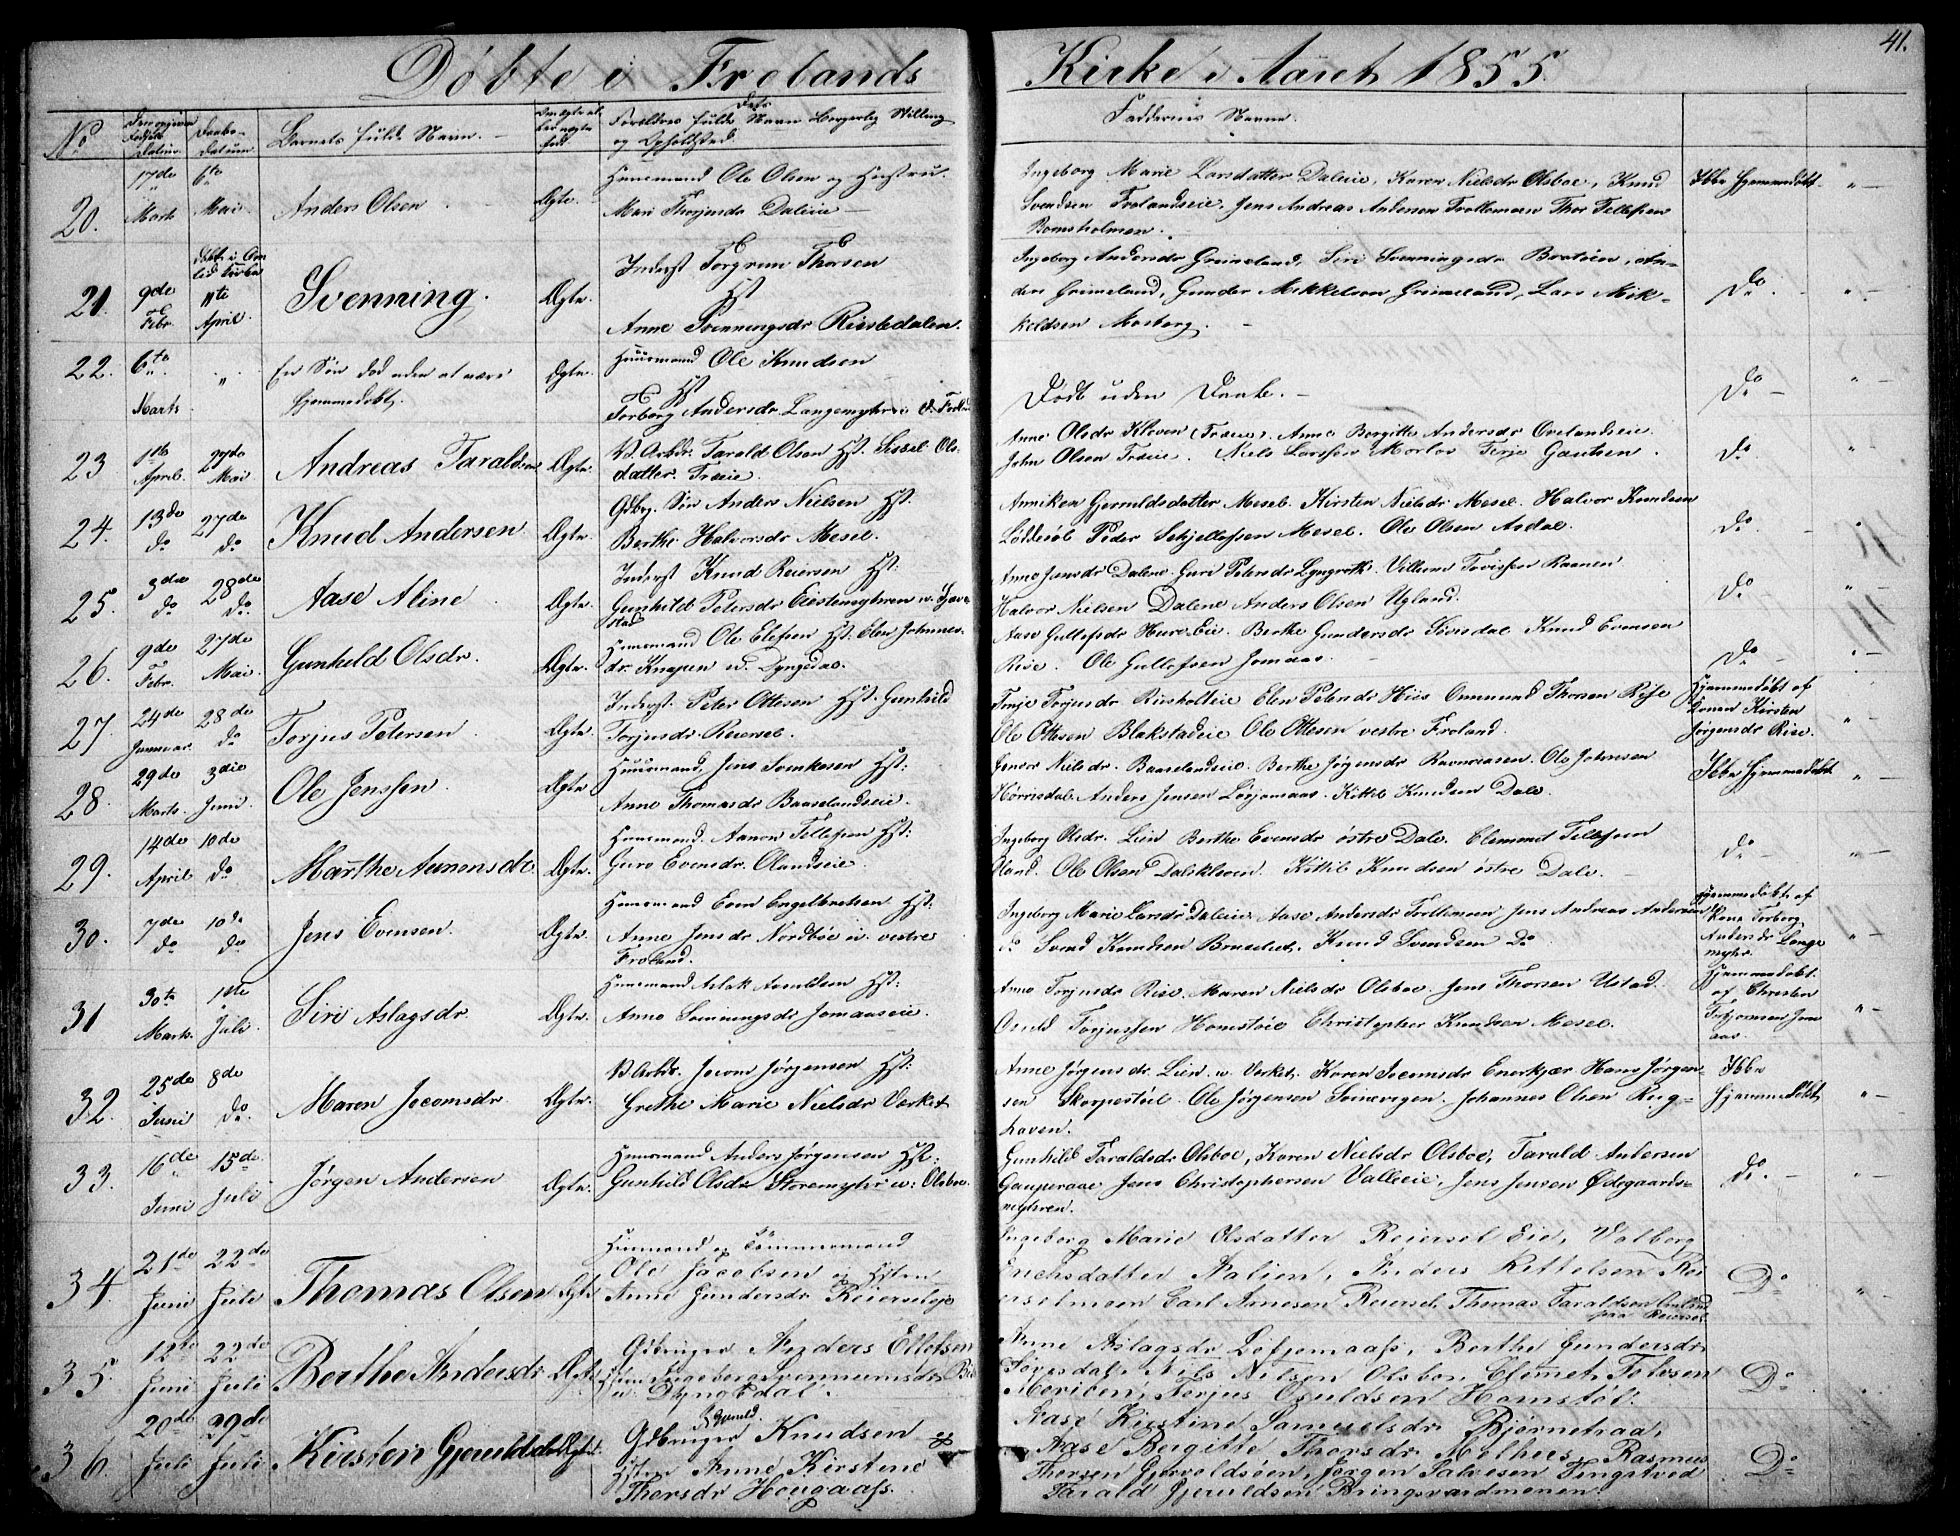 41.
Döbte i Frolands Kirke i Aaret 1855.
No
Daabs-
Datum.
Barnets fulde Navn.
Foreldres fulde Navn Borgerlig Stilling
og Opholdsted.
Faddernes Navne.
20.
17de Marts
6te Mai
Anders Olsen
Ægte.
Huusmand Ole Olsen og Hustru
Mari Thorjusdr Daleie
Ingeborg Marie Larsdatter Daleie, Karen Nielsdr Olsboe, Knud
Svendsen Frolandseie, Jens Andreas Andersen Trollemoen Thor Tellefsen
Bomsholmen.
Ibbm Hjemmedöbt
21.
9de Febr.
11te April
Svenning.
Ægte.
Inderst Torgrim Thorsen
Hst
Anne Svenningsdr Risledalen.
Ingeborg Andersdr Grimeland, Siri Svenningsdr
ders Grimeland, Gunder Mikkelsen Grimeland, Lars Mik-
keldsen Mosberg.
Do
22.
6te Marts
"
En Sön död uden at være
hjemmedöbt.
Ægte.
Huusmand Ole Knudsen
Hst
Torborg Andersdr Langemyhr
Födt uden Daabe.
Do
23
1ste April.
27de Mai
Andreas Taraldsen
Ægte.
Tarald Olsen Hst. Sissel Ols-
datter. Træeie.
Anne Olsdr Kleven (Træeie). Anne Borgitte Andersdr Ovelandseie.
John Olsen Træeie. Niels Larssen Morlov Terje Gautsen.
Do
24.
13de Do
27de Do
Knud Andersen.
Ægte.
Gdbrg. Sön Anders Nielsen Hst.
Berthe Halvorsdr Mesel.
Anniken Gjeruldsdatter Mesel. Kirsten Nielsdr Mesel. Halvor Knudsen
Löddesöl Peder Sckjellefsen Mesel. Ole Olsen Asdal.
Do
25.
3die Do
28de Do
Aase Aline
Ægte.
Inderst Knud Reiersen Hst:
Gunhild Petersdr
Anne Jensdr Dalene. Guri Petersdr Lyngroth. Villum
Halvor Nielsen Dalene Anders Olsen Ugland.
Do
26.
9de Febr.
27de Mai
Gunhild Olsdr.
Ægte.
Huusmand Ole Elefsen Hst: Elen Johnes-
dr. Knapen u. Dyngedal.
Aase Gullefsdr Hurv Eie. Berthe Gundersdr Siversdal Knud Evensen
Rise. Ole Gullefsen Jomaas.
Do
27.
24de Januar.
28de Do
Torjus Petersen
Ægte.
Inderst. Peter Ottesen Hst. Gunhild
Torjusdr Reiersel.
Terje Torjusdr Riisholteie Elen Petersdr Hiis Ommund Thorsen Rise
Ole Ottesen Blakstadeie Ole Ottesen vestre Froland.
Hjemmedöbt af
Konen Kirsten
Jörgensdr Rise.
28.
29de Marts.
3die Juni
Ole Jenssen.
Ægte.
Huusmand, Jens Svenkesen Hst:
Anne Thomasdr Baaselandseie.
Nielsdr. Baaselandseie. Berthe Jörgensdr Ravneaasen. Ole Johnesen
Hörrisdal. Anders Jensen Lösjomaas. Kittil Knudsen Dale.
Ibbm Hjemmedöbt
29.
14de April
10de Do
Marthe Aanonsdr.
Ægte.
Huusmand. Aanon Tellefsen Hst:
Guro Evensdr. Olandseie.
Ingeborg Olsdr. Lien Berthe Evensdr östre Dale. Clemmet Tellefsen
Oland. Ole Olsen Dalskleven. Kittil Knudsen östre Dale.
Do
30.
7de Do
10de Do
Jens Evensen.
Ægte.
Huusmand Even Engelbretsen Hst:
Anne Jensdr Nordböe u. vestre
Froland.
Ingeborg Marie Larsdr Daleie, Aase Andersdr Trollemoen Jens Andreas Andersen
Do Svend Knudsen Knud Svendsen Do
Hjemmedöbt af
Kone Torborg
Andersdr Lange
myhr.
31
30te Marts.
1ste Juli.
Siri Aslagsdr.
Ægte.
Huusmand Aslak Hst:
Anne Svenningsdr Jomaaseie.
Anne Torjusdr Rise. Maren Nielsdr Olsboe. Jens Thorsen Ustad.
Osuld Torjussen Homstöie Christopher Knudsen Mesel.
Hjemmedöbt
af Christen
Terkjersen Jom
aas.
32.
25de Juni
8de Do.
Maren Jocomsdr.
Ægte.
Jocom Jörgensen Hst:
Grethe Marie Nielsdr Værket
Anne Jörgensdr Lien u. Værket. Karen Jocomsdr Enerkjær Hans Jörgen-
sen Skorpestöil. Ole Jörgensen Svinevigen. Johannes Olsen Rug-
haven.
Ibbm
Hjemmedöbt
33.
16de Juni
15de Juli
Jörgen Andersen
Ægte.
Huusmand Anders Jörgensen Hst:
Gunhild Olsdr Storemyhr u: Olsboe.
Gunhild Taraldsdr Olsboe, Karen Nielsdr Olsboe, Tarald Andersen
Gauperaae Jens Christophersen Valleeie, Jens Jensen Ödegaards-
myhren.
Do.
34.
21de Juni
22de Juli
Thomas Olsen
Ægte
Huusmand og Tömmermand
Ole Jacobsen og Hstru
Anne Gundersdr Reierseleje
Ingeborg Marie Olsdatter Reiersel Eie, Valborg
Erichsdatter Aaljen, Anders Kittelsen Rei
erselmoen Carl Arnesen Reiersel, Thomas Taraldsen
paa Reiersel
Do
35.
12te Juni
22de Juli
Berthe Andersdr
Ægte
Gdbruger Anders Ellefsen
Hstru Ingeborg Svenningsdr
u. Dyngedal.
Anne Aslagsdr Löfjomaass, Berthe Gundersdr
Sörersdal, Nils Nilsen Olsboe, Clemet Tolvsen
Torjus Osuldsen Homstöl.
Do
36.
20de Juli
29de Juli
Kirsten Gjeruldsdr
Ægte.
Gjeruld
Gdbruger Knudsen og
Hstru Anne Kirstine
Thorsdr Hougaass.
Aase Kirstine Samuelsdr Björnetraa,
Aase Birgitte Thorsdr Molhei, Rasmus
Thorsen Gjervoldsöen, Jörgen Salvesen Tingstved
Tarald Gjeruldsen Bringsværdmoenen.
Do